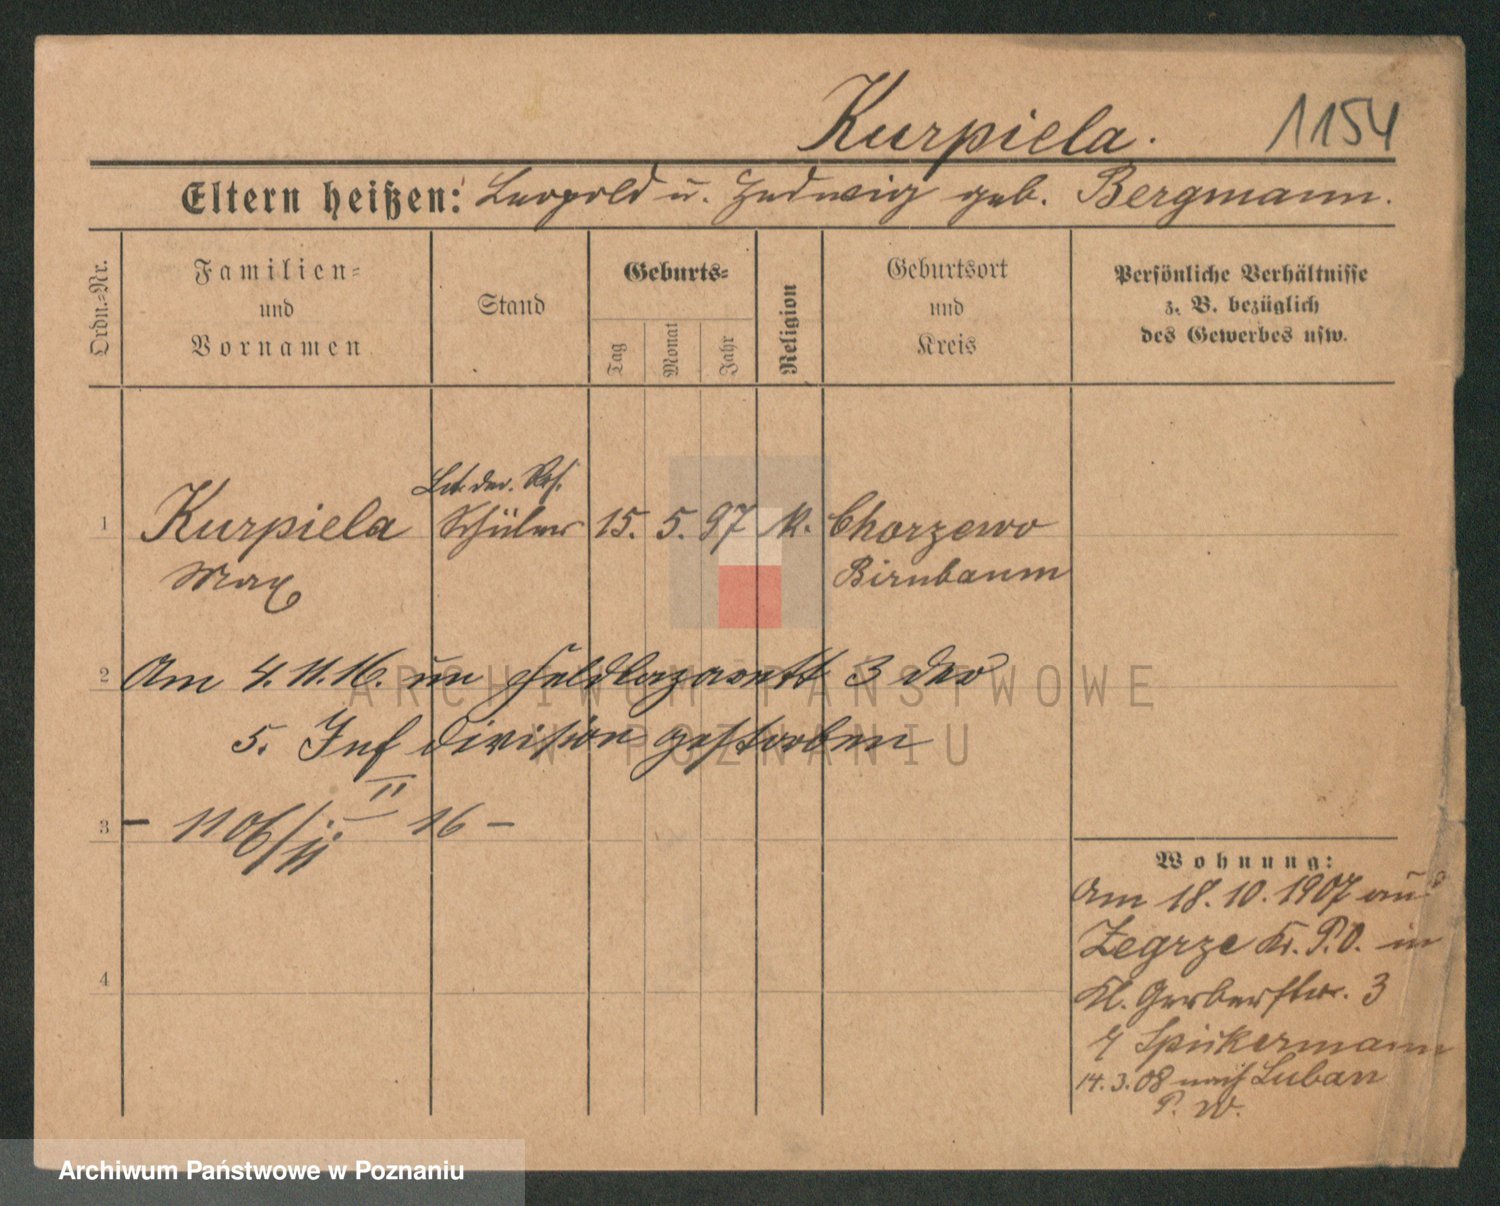 Kurpiela. 1154
Eltern heißen: Leopold u. Hedwig geb. Bergmann.
Ordn.=Nr.
Familien=
und
Vornamen
Stand
Geburts=
Tag
Monat
Jahr
Religion
Geburtsort
und
Kreis
Persönliche Verhältnisse
z. B. bezüglich
des Gewerbes usw.
Lt. der. Res.
1 Kurpiela Schüler 15. 5. 97 k. Chorzewo
Max Birnbaum
2 Am 4. 11. 16. im Feldlazarett 3 der
5. Inf division gestorben
3 — 1106/II. 16 —
4
Wohnung:
Am 18. 10. 1907 aus
Zegrze Kr. P.O. in
Kl. Gerberstr. 3
Spickermann
14. 3. 08 nach Luban
P. W.
ARCHIWUM PAŃSTWOWE
W POZNANIU
Archiwum Państwowe w Poznaniu